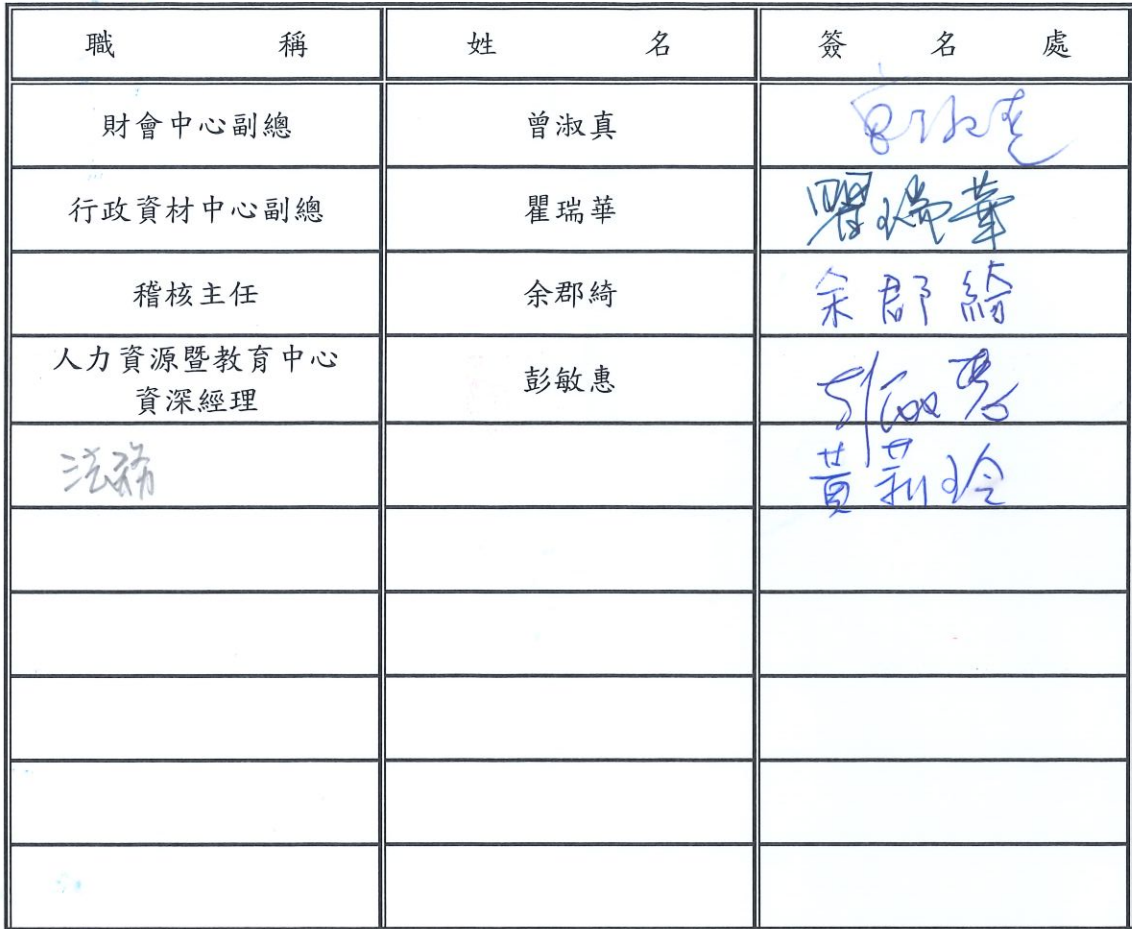 職稱 姓名 簽名處
財會中心副總 曾淑真 曾淑真
行政資材中心副總 瞿瑞華 瞿瑞華
稽核主任 余郡綺 余郡綺
人力資源暨教育中心
資深經理 彭敏惠 彭敏惠
法務 黃莉玲